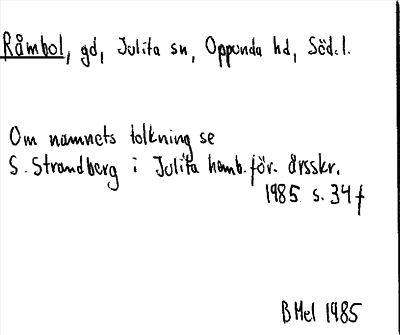 Råmbol, gd, Julita sn, Oppunda hd, Söd.l.
Om namnets tolkning se
S. Strandberg i Julita hemb.för. årsskr.
1985 s. 34 f
BMel 1985